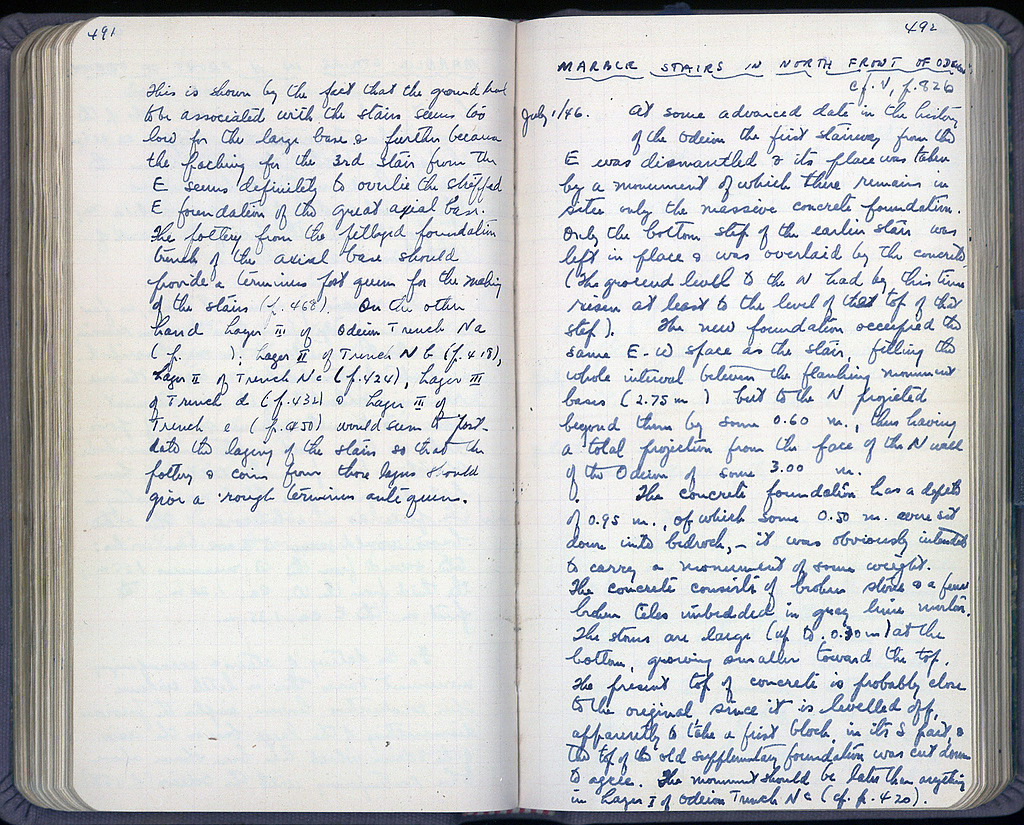 491
This is shown by the fact that the ground level
to be associated with the stairs seems too
low for the large base & further because
the packing for the 3rd stair from the
E seems definitely to overlie the stripped
E foundation of the great axial base.
The pottery from the pillaged foundation
trench of the axial base should
provide a terminus post quem for the making
of the stairs (p. 468). On the other
hand Layer III of Odeion Trench Na
(p.       ); Layer II of Trench N b (p. 418),
Layer II of Trench Nc (p. 424), Layer III
of Trench d (p. 432) & Layer III of
Trench e (p. 450) would seem to post-
date the laying of the stairs so that the
pottery & coins from those layers should
give a rough terminus ante quem.
492
MARBLE STAIRS IN NORTH FRONT OF ODEION
cf. V, p. 826
July 1/46. At some advanced date in the history
of the Odeion the first stairway from the
E was dismantled & its place was taken
by a monument of which there remains in
situ only the massive concrete foundation.
Only the bottom step of the earlier stair was
left in place & was overlaid by the concrete
(The ground level to the N had by this time
risen at least to the level of that top of that
step). The new foundation occupied the
same E-W space as the stair, filling the
whole interval between the flanking monument
bases (2.75 m ) but to the N projected
beyond them by some 0.60 m., thus having
a total projection from the face of the N wall
of the Odeion of some 3.00 m.
The concrete foundation has a depth
of 0.95 m., of which some 0.50 m. were set
down into bedrock, - it was obviously intended
to carry a monument of some weight.
The concrete consists of broken stones & a few
broken tiles imbedded in gray lime mortar.
The stones are large (up to 0.30 m) at the
bottom, growing smaller toward the top.
The present top of concrete is probably close
to the original, since it is levelled off,
apparently to take a first block, in its S part, &
the top of the old supplementary foundation was cut down
to agree. The monument should be later than anything
in Layer I of Odeion Trench Nc (cf. p. 420).